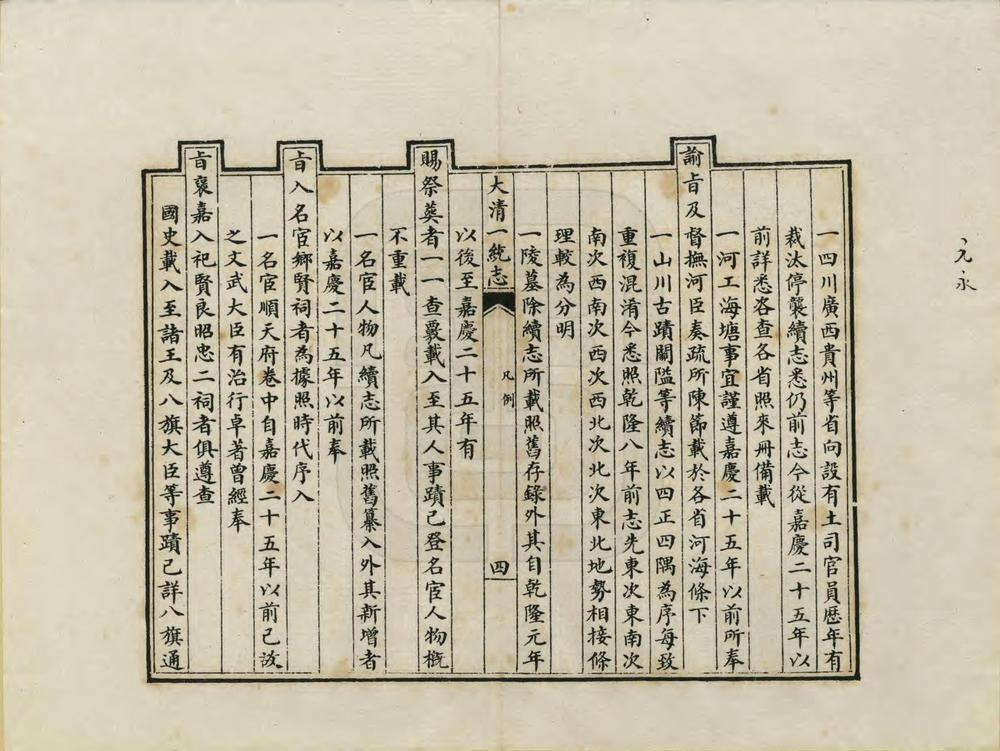 元永
一四川廣西貴州等省向設有土司官員歷年有
裁汰停襲續志悉仍前志今從嘉慶二十五年以
前詳悉咨查各省照來冊備載
一河工海塘事宜謹遵嘉慶二十五年以前所奉
諭旨及督撫河臣奏疏所陳節載於各省河海條下
一山川古蹟關隘等續志以四正四隅為序每致
重複混淆今悉照乾隆八年前志先東次東南次
南次西南次西次西北次北次東北地勢相接條
理較為分明
一陵墓除續志所載照舊存錄外其自乾隆元年
大清一統志
凡例
四
以後至嘉慶二十五年有
賜祭葬者一一查覈載入至其人事蹟已登名宦人物概
不重載
一名宦人物凡續志所載照舊纂入外其新增者
以嘉慶二十五年以前奉
旨入名宦鄉賢祠者為據照時代序入
一名宦順天府卷中自嘉慶二十五年以前已故
之文武大臣有治行卓著曾經奉
旨褒嘉入祀賢良昭忠二祠者俱遵查
國史載入至諸王及八旗大臣等事蹟已詳八旗通